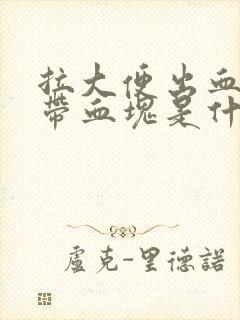 拉大便出血
帶血塊是什
盧克-里德諾